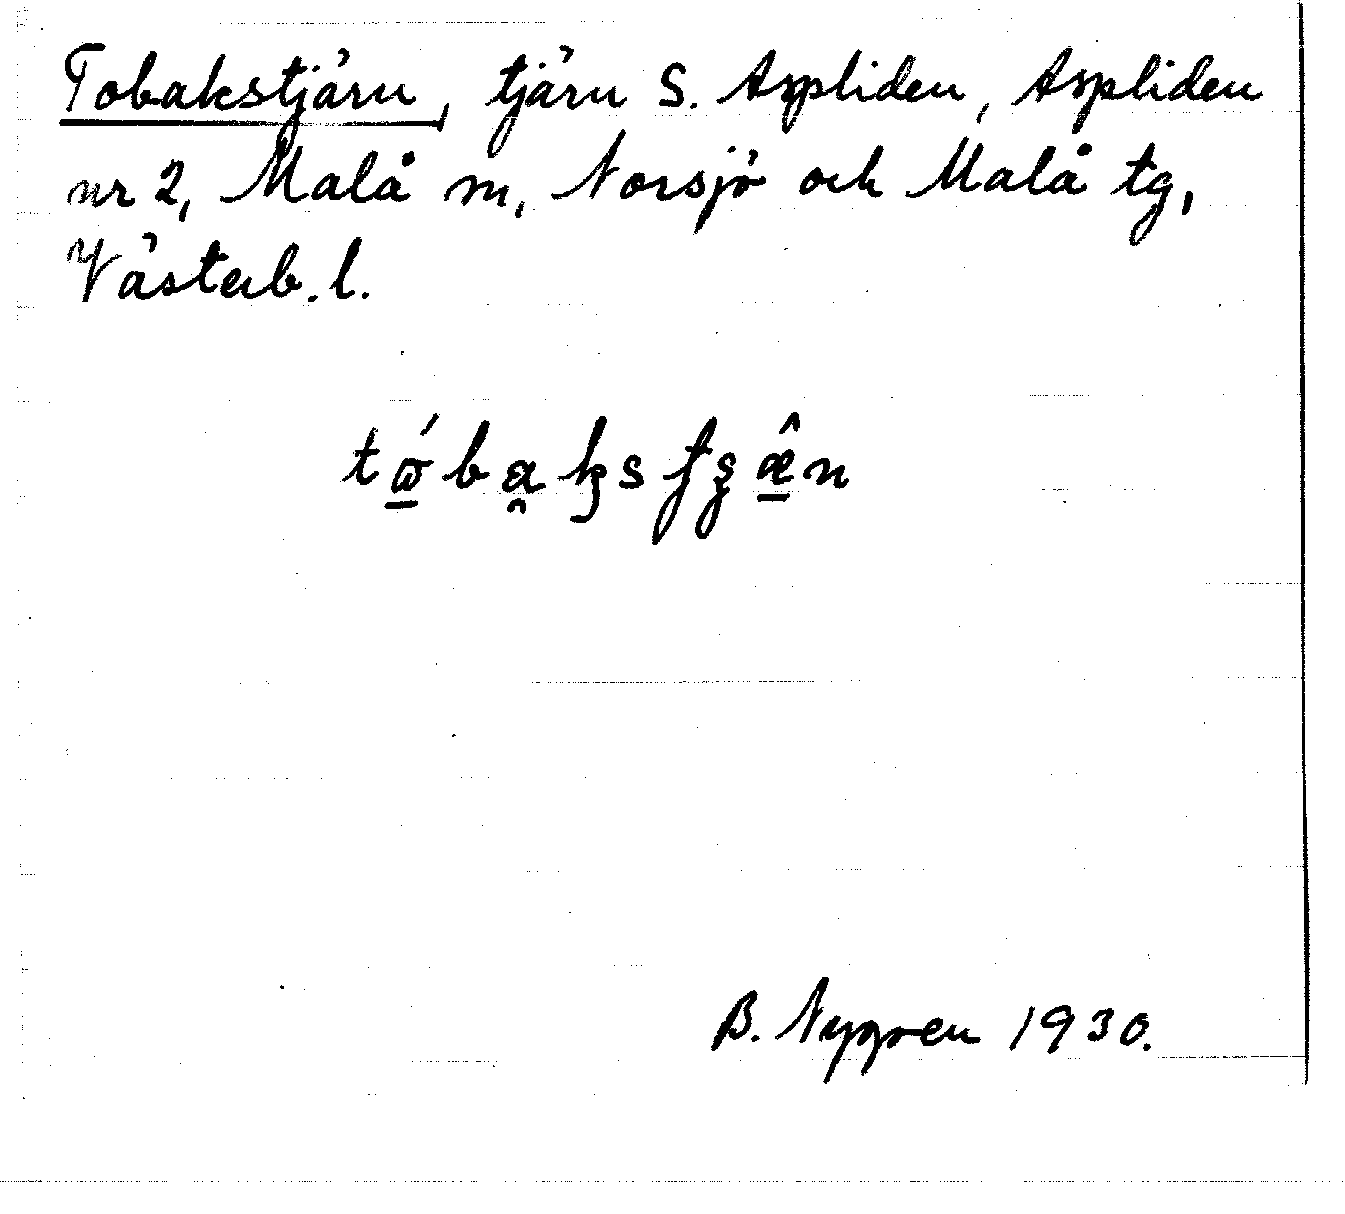 Tobakstjärn, tjärn S. Aspliden, Aspliden
nr 2, Malå sn, Norsjö och Malå tg,
Västerb. l.
B. Nygren 1930.